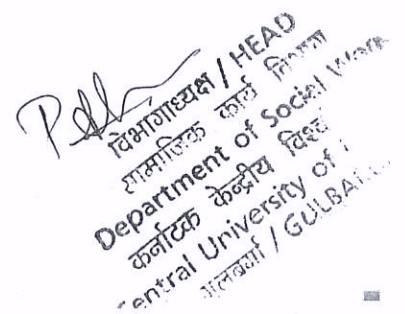 विभागाध्यक्ष / HEAD
सामाजिक कार्य विभाग
Department of Social Work
कर्नाटक केन्द्रीय
Central University of
/ GULBA